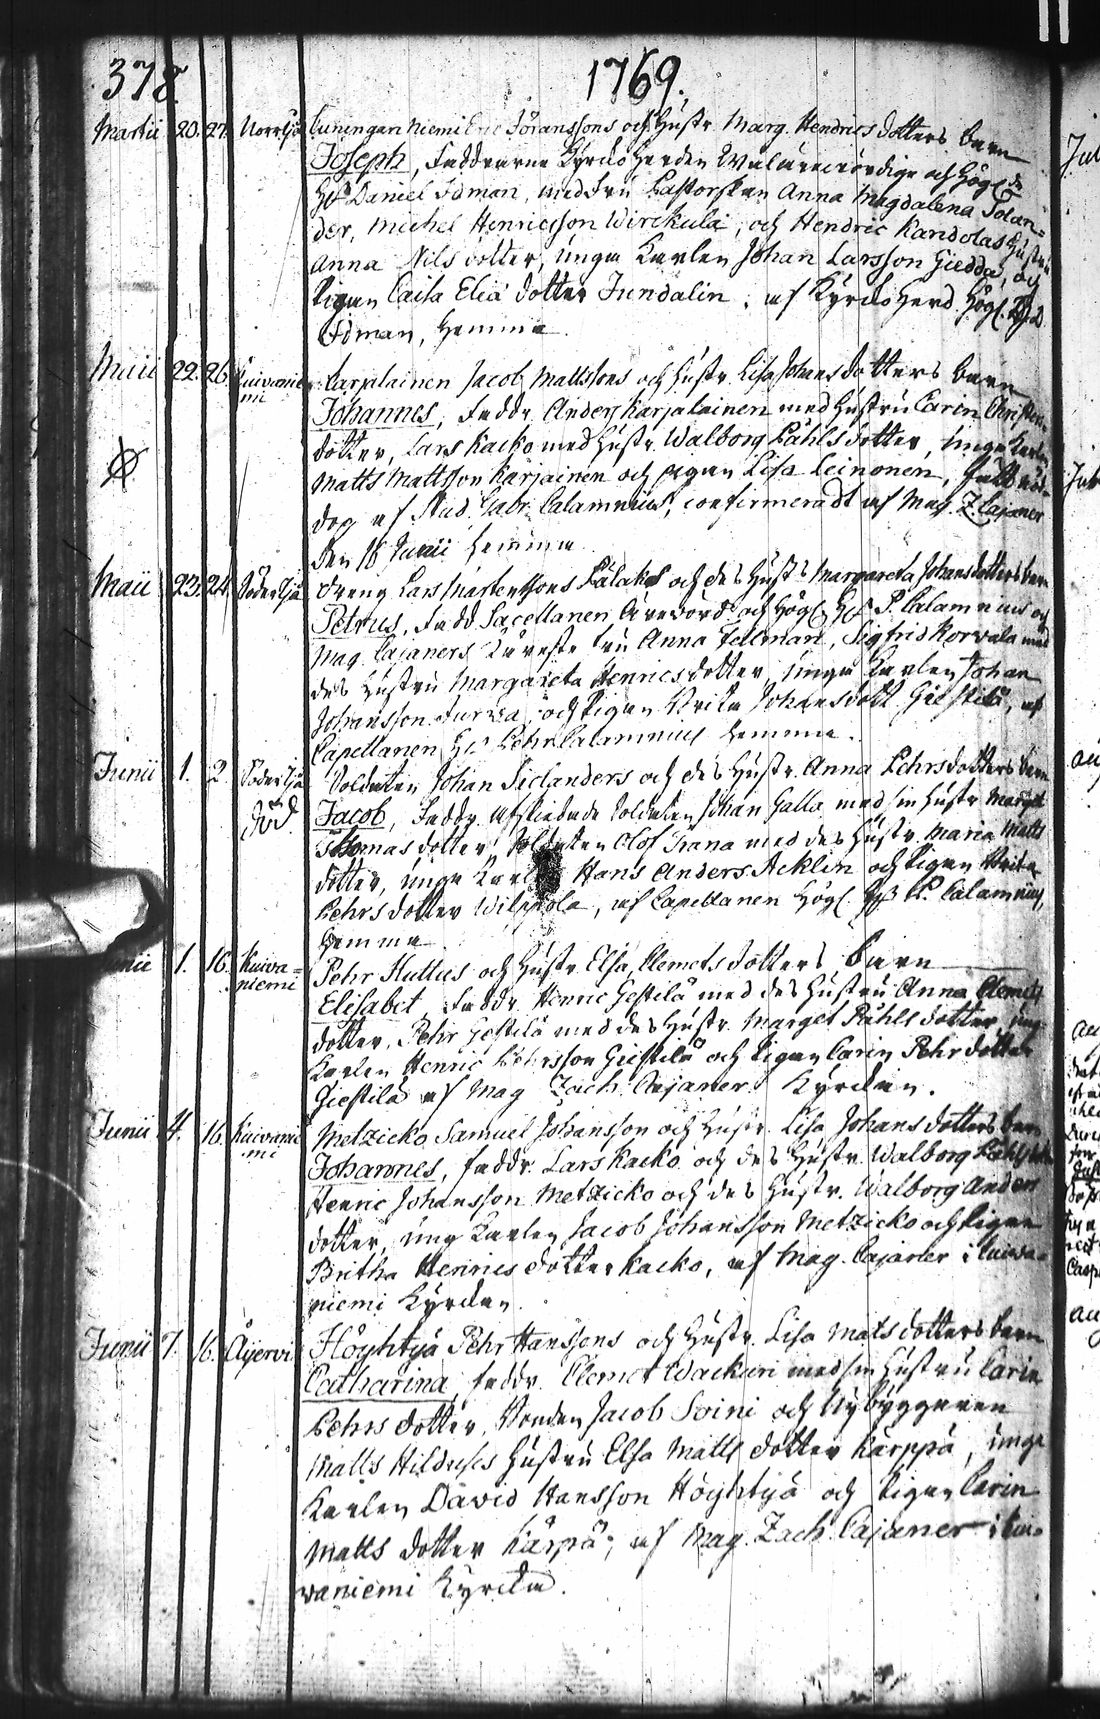 378. 1769.
Martii 20. 27. Norrsjö Cuningan niemi Eric Göranssons och Hustr. Marg. Hendrics dotters barn
Joseph, Faddrarne Kyrckoherden Wälärewördige och Högl.
H:r Daniel Idman, med Fru Pastorskan Anna Magdalena Tolan-
der, Michel Henricsson Wirckula, och Hendric Kandolas Hustru
Anna Nils dotter, unga Karlen Johan Larsson Giedda, och
Pigan Caisa Elia dotter Jundalin. af Kyrckoherd. Högl. H:r D.
Idman, hemma.
Maii 22. 26. Kuivanie
mi
Karjalainen Jacob Mattssons och Hustr. Lisa Johans dotters barn
Johannes, Faddr. Anders Karjalainen med Hustru Carin Christers
dotter, Lars Kacko med Hustr. Walborg Påhls dotter, unga Karlen
Matts Mattsson Karjainen och pigan Lisa Leinonen,
dop af Stud. Gabr. Calamnius, confirmeradt af Mag. Z. Cajaner
den 18 Junii hemma.
Maii 23. 24. Södersjö Dreng Lars Mårtenssons Palakos och des Hustrs Margareta Johansdotters barn
Petrus, Fadd. Sacellanen Ärewörd. och Högl. H:r P. Calamnius och
Mag. Cajaners Käreste Fru Anna Fellman, Sigfrid Korvala med
des Hustru Margareta Henricsdotter, unga Karlen Johan
Johansson Turwa, och Pigan Brita Johansdott. Giestilä, af
Capellanen H:r Pehr Calamnius hemma.
Junii 1. 2. Södersjö
död
Soldaten Johan Siclanders och des Hustr. Anna Pehrsdotters barn
Jacob, Faddr. Afskiedade Soldaten Johan Galla med sin Hustr. Marget
Thomas dotter, Soldaten Olof Trana med des Hustr. Maria Matts
dotter, unga Karlen Hans Anders. Acklin och Pigan Brita
Pehrs dotter Wilppola, af Capellanen Högl. H:r P. Calamnius
hemma.
1. 16. Kuiva=
niemi
Pehr Huttus och Hustr. Elsa Clemets dotters barn
Elisabet, Faddr. Henric Gestilä med des Hustru Anna Clemets
dotter, Pehr Gestilä med des Hustr. Marget Påhls dotter, ung
Karlen Henric Pehrsson Giestilä och Pigan Carin Pehrdotter
Giestilä af Mag. Zach. Cajaner i Kyrckan.
Junii 4. 16. Kuivanie
mi
Metzicko Samuel Johansson och Hustr. Lisa Johans dotters barn
Johannes, faddr. Lars Kacko och des Hustr. Walborg Påhls
Henric Johansson Metzicko och des Hustr. Walborg Anders
dotter, ung Karlen Jacob Johansson Metzicko och Pigan
Britha Henrics dotter Kacko, af Mag. Cajaner i Kuiva-
niemi Kyrckan.
Junii 7. 16. Åijervi Höyhtyä Pehr Hanssons och Hustr. Lisa Mats dotters barn
Catharina, faddr. Clemet Wackuri med sin Hustru Carin
Pehrs dotter, Bonden Jacob Soini och Nybyggaren
Matts Hilduses Hustru Elsa Matts dotter Kärppä, unga
Karlen David Hansson Höyhtyä och Pigan Carin
Matts dotter Kärpä, af Mag. Zach. Cajaner i Kui-
vaniemi Kyrcka.